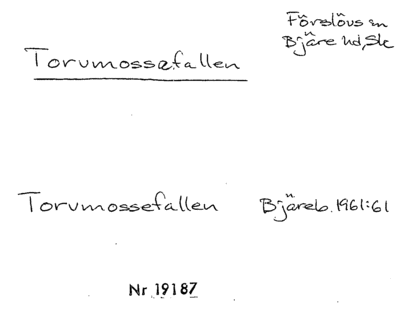 Förslövs sn
Bjäre hd, Sk
Torumossefallen
Torumossefallen Bjäreb. 1961:61
Nr 19187